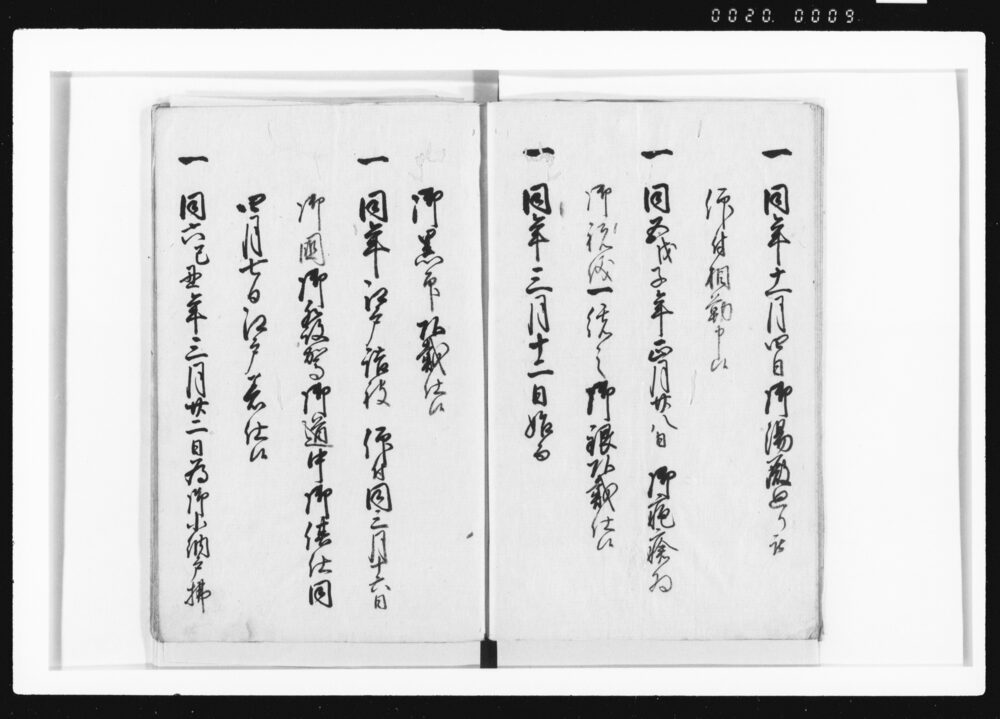 0020. 0009
一 同年十一月四日御湯殿
仰付相勤申候
一 同五戊子年正月廿八日 御疱瘡為
御祝儀一統之御銀頂戴仕候
一 同年三月十二日始而
御黒印頂戴仕候
一 同年江戸詰被 仰付同三月十六日
御國御發駕御道中御供仕同
四月七日江戸着仕候
一 同六己丑年三月廿二日為御小納戸拂